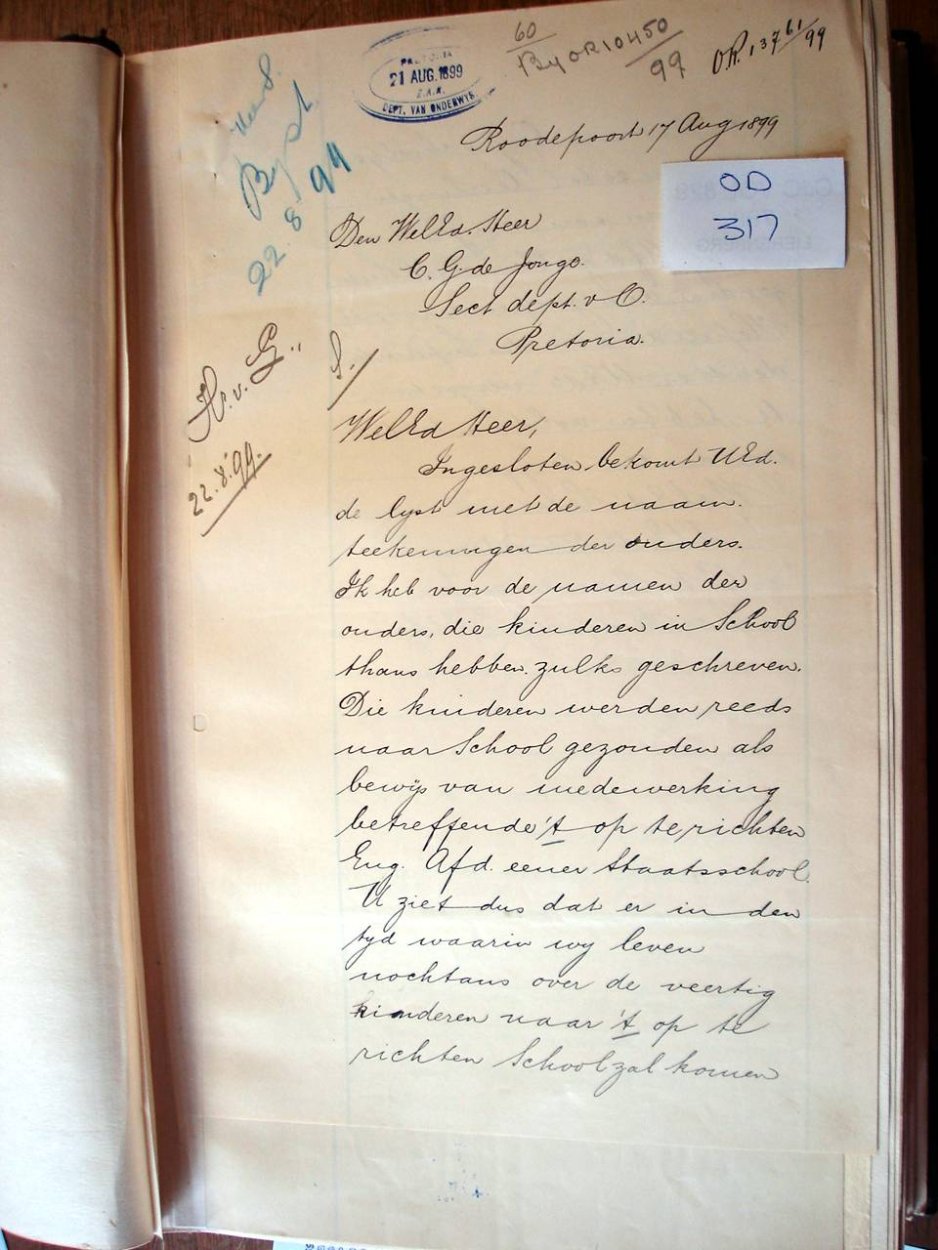 60
By OR10450/99
OR 13761/99
PRETORIA
21 AUG. 1899
Z.A.R.
DEPT. VAN ONDERWYS.
Roodepoort 17 Aug 1899
OD
317
22 8 99
Den WelEd. Heer
C. G. de Jonge.
Sect dept. v O.
Pretoria.
H. v. G.,
22.8.'99.
S./
WelEd Heer,
Ingesloten bekomt UEd.
de lyst met de naam.
teekeningen der ouders.
Ik heb voor de namen der
ouders, die kinderen in School
thans hebben zulks geschreven.
Die kinderen werden reeds
naar School gezonden als
bewijs van medewerking
betreffende 't op te richten
Eng. Afd. eener Staatsschool.
U ziet dus dat er in den
tyd waarin wy leven
nochtans over de veertig
kinderen naar 't op te
richten School zal komen